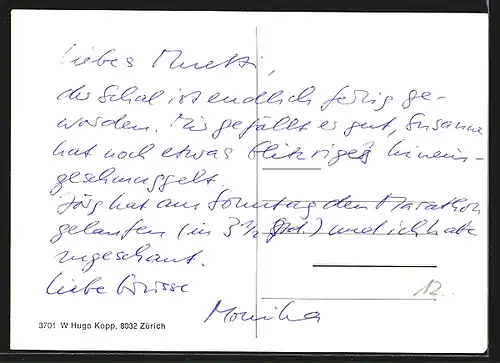 Liebes Muetti,
der Schal ist endlich fertig ge-
worden. Mir gefällt er gut, Susanne
hat noch etwas Glitziges hinein-
geschmuggelt.
Jörg hat am Sonntag den Marathon
gelaufen (in 3 1/2 Std.) und ich habe
zugeschaut.
Liebe Grüsse
Monika
12.
3701 W Hugo Kopp, 8032 Zürich